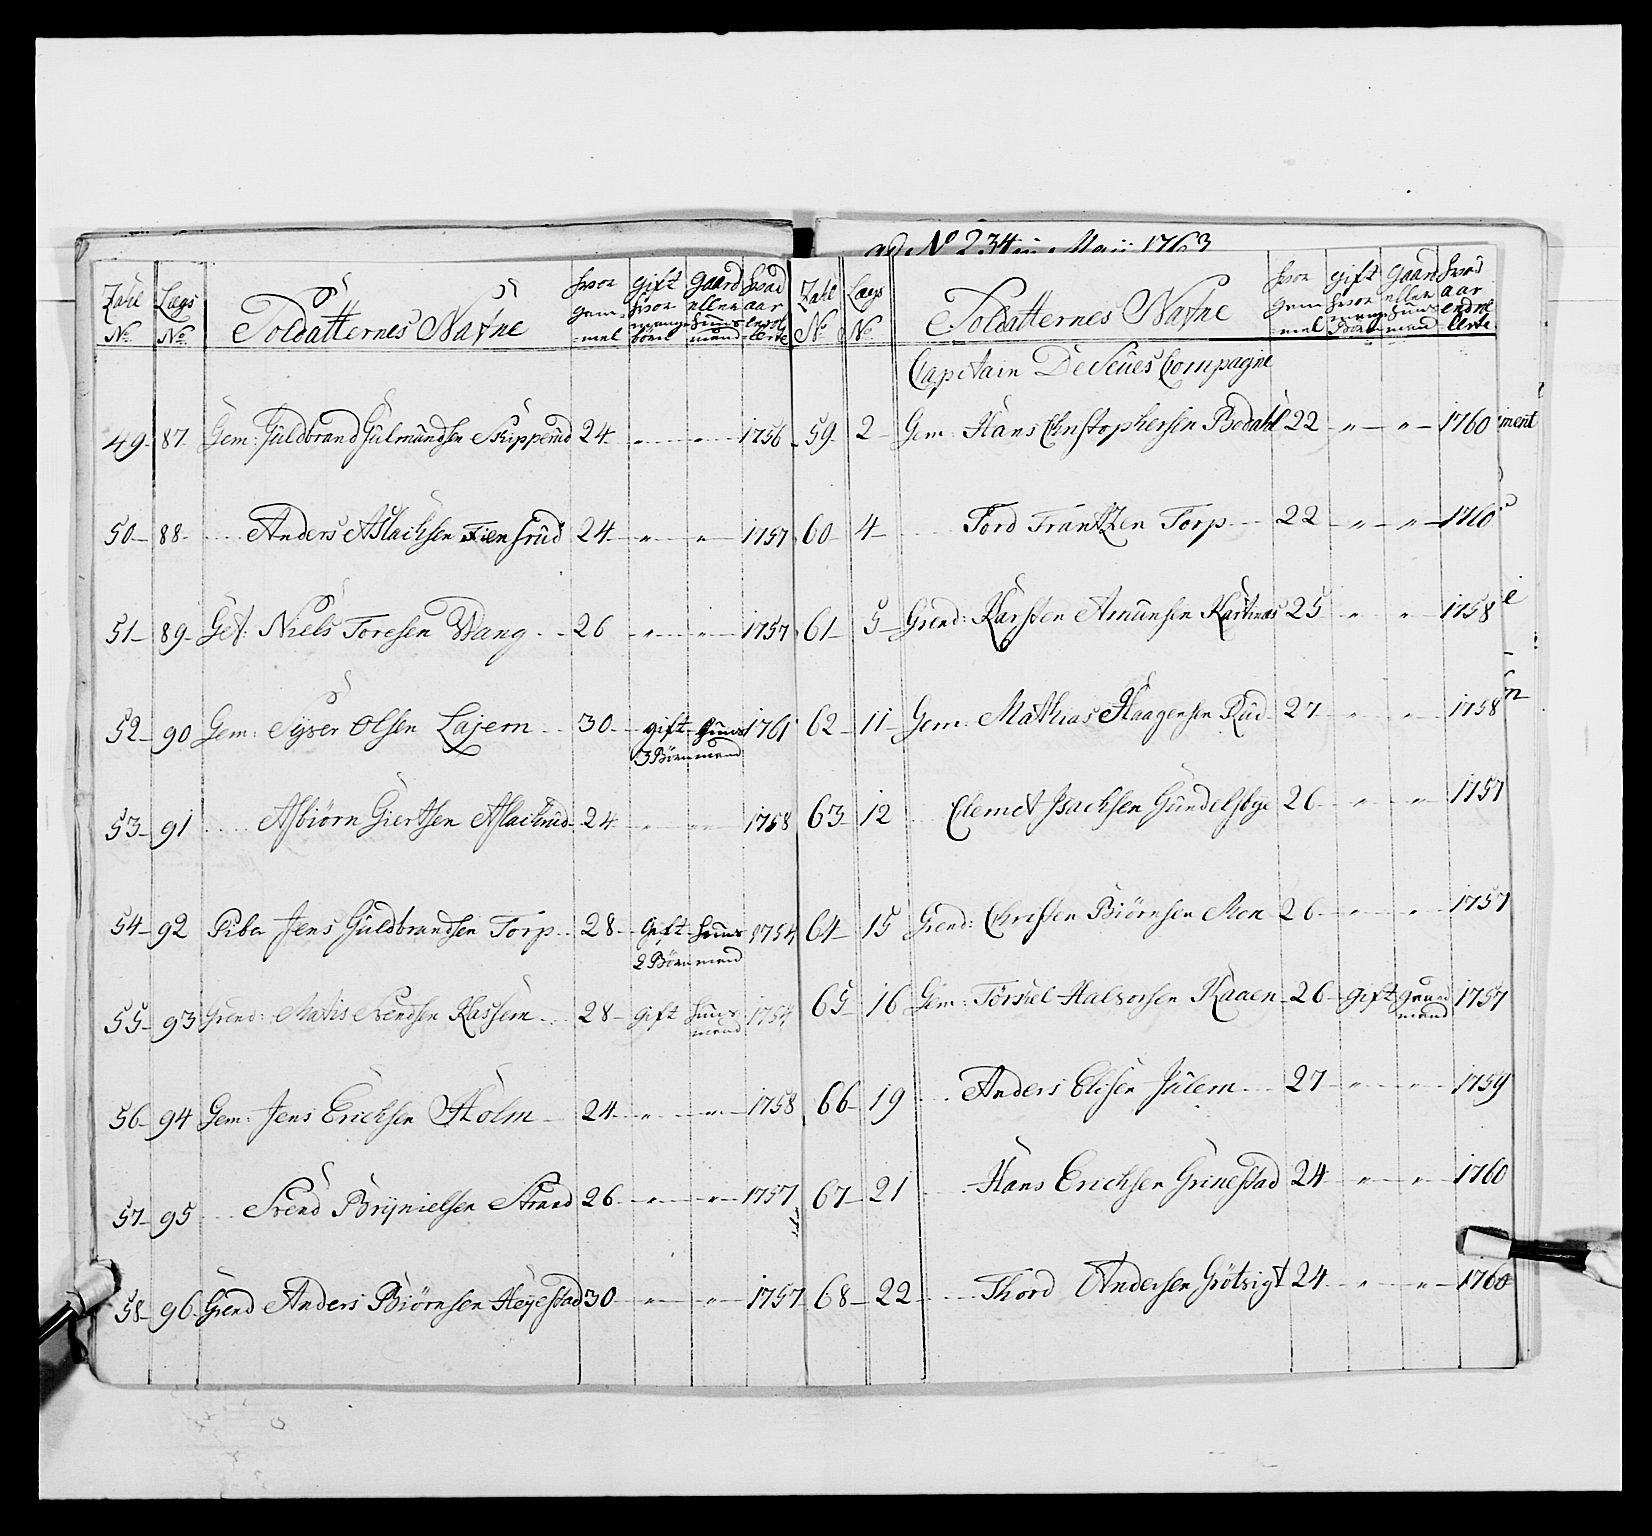 ad No 234 in Maii 1763
Zahl No | Lægs No | Soldatternes Nafne | hvor gammel | gift hvor mange börn | gaard eller huusmand | hvad aar enrollerte
49 87 Gem: Guldbrand Gulmundsen Skipperud 24 " " 1756
50 88 Anders Aslachsen Fiensrud 24 " " 1757
51 89 Gef: Niels Toresen Wang 26 " " 1757
52 90 Gem: Syver Olsen Lajem 30 gift 3 Börn huusmand 1761
53 91 Asbiörn Giertsen Aslachrud 24 " " 1758
54 92 Piber Jens Guldbrandsen Torp 28 Gift 2 Börn huusmand 1754
55 93 Grend: Matis Svendsen Kassem 28 gift huusmand 1754
56 94 Gem: Jens Erichsen Holm 24 " " 1758
57 95 Svend Brynielsen Strand 26 " " 1757
58 96 Grend Anders Biörnsen Heyestad 30 " " 1757
Zahl No | Lægs No | Soldatternes Nafne | hvor gammel | gift hvor mange Börn | gaard eller huusmand | hvad aar enrollerte
Capitain De Seues Compagne
59 2 Gem: Hans Christophersen Bodahl 22 " " 1760
ment
60 4 Tord Frantzen Torp 22 " " 1760
61 5 Grend: Karsten Amunsen Kartnæs 25 " " 1758
62 11 Gem: Mathias Haagensen Rud 27 " " 1758
63 12 Clemet Isachsen Gundelsbye 26 " " 1757
64 15 Grend: Christen Biörnsen Moen 26 " " 1757
65 16 Gem: Torskel Halvorsen Kaaen 26 gift gaardmand 1757
66 19 Anders Elisen Julem 27 " " 1759
67 21 Hans Erichsen Grinestad 24 " " 1760
68 22 Thord Andersen Grötvigt 24 " " 1760